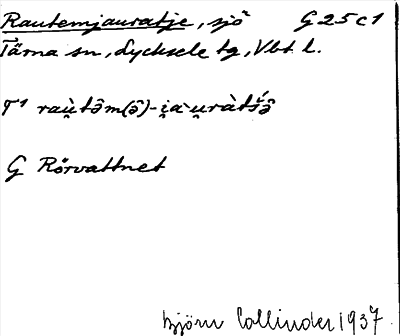 Rautemjauratje, sjö G 25 c 1
Tärna sn, Lycksele tg, Vbt l.
T¹ raù̯tə̑m(ə̑)-i̯a`u̯ràtś̌ə̑
G Rörvattnet
Björn Collinder 1937